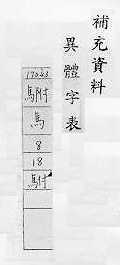 補充資料
異體字表
駙
馬
8
18
駙